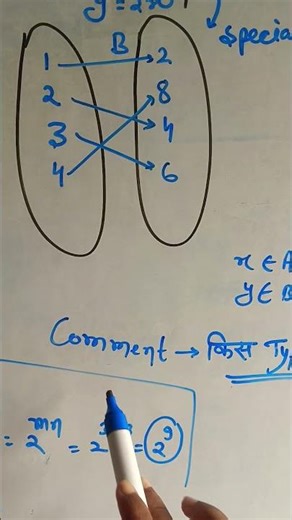 B
special
1 2
2 8
3 4
4 6
x ∈ A
y ∈ B
Comment → किस
= 2^mn = 2 = 2^9